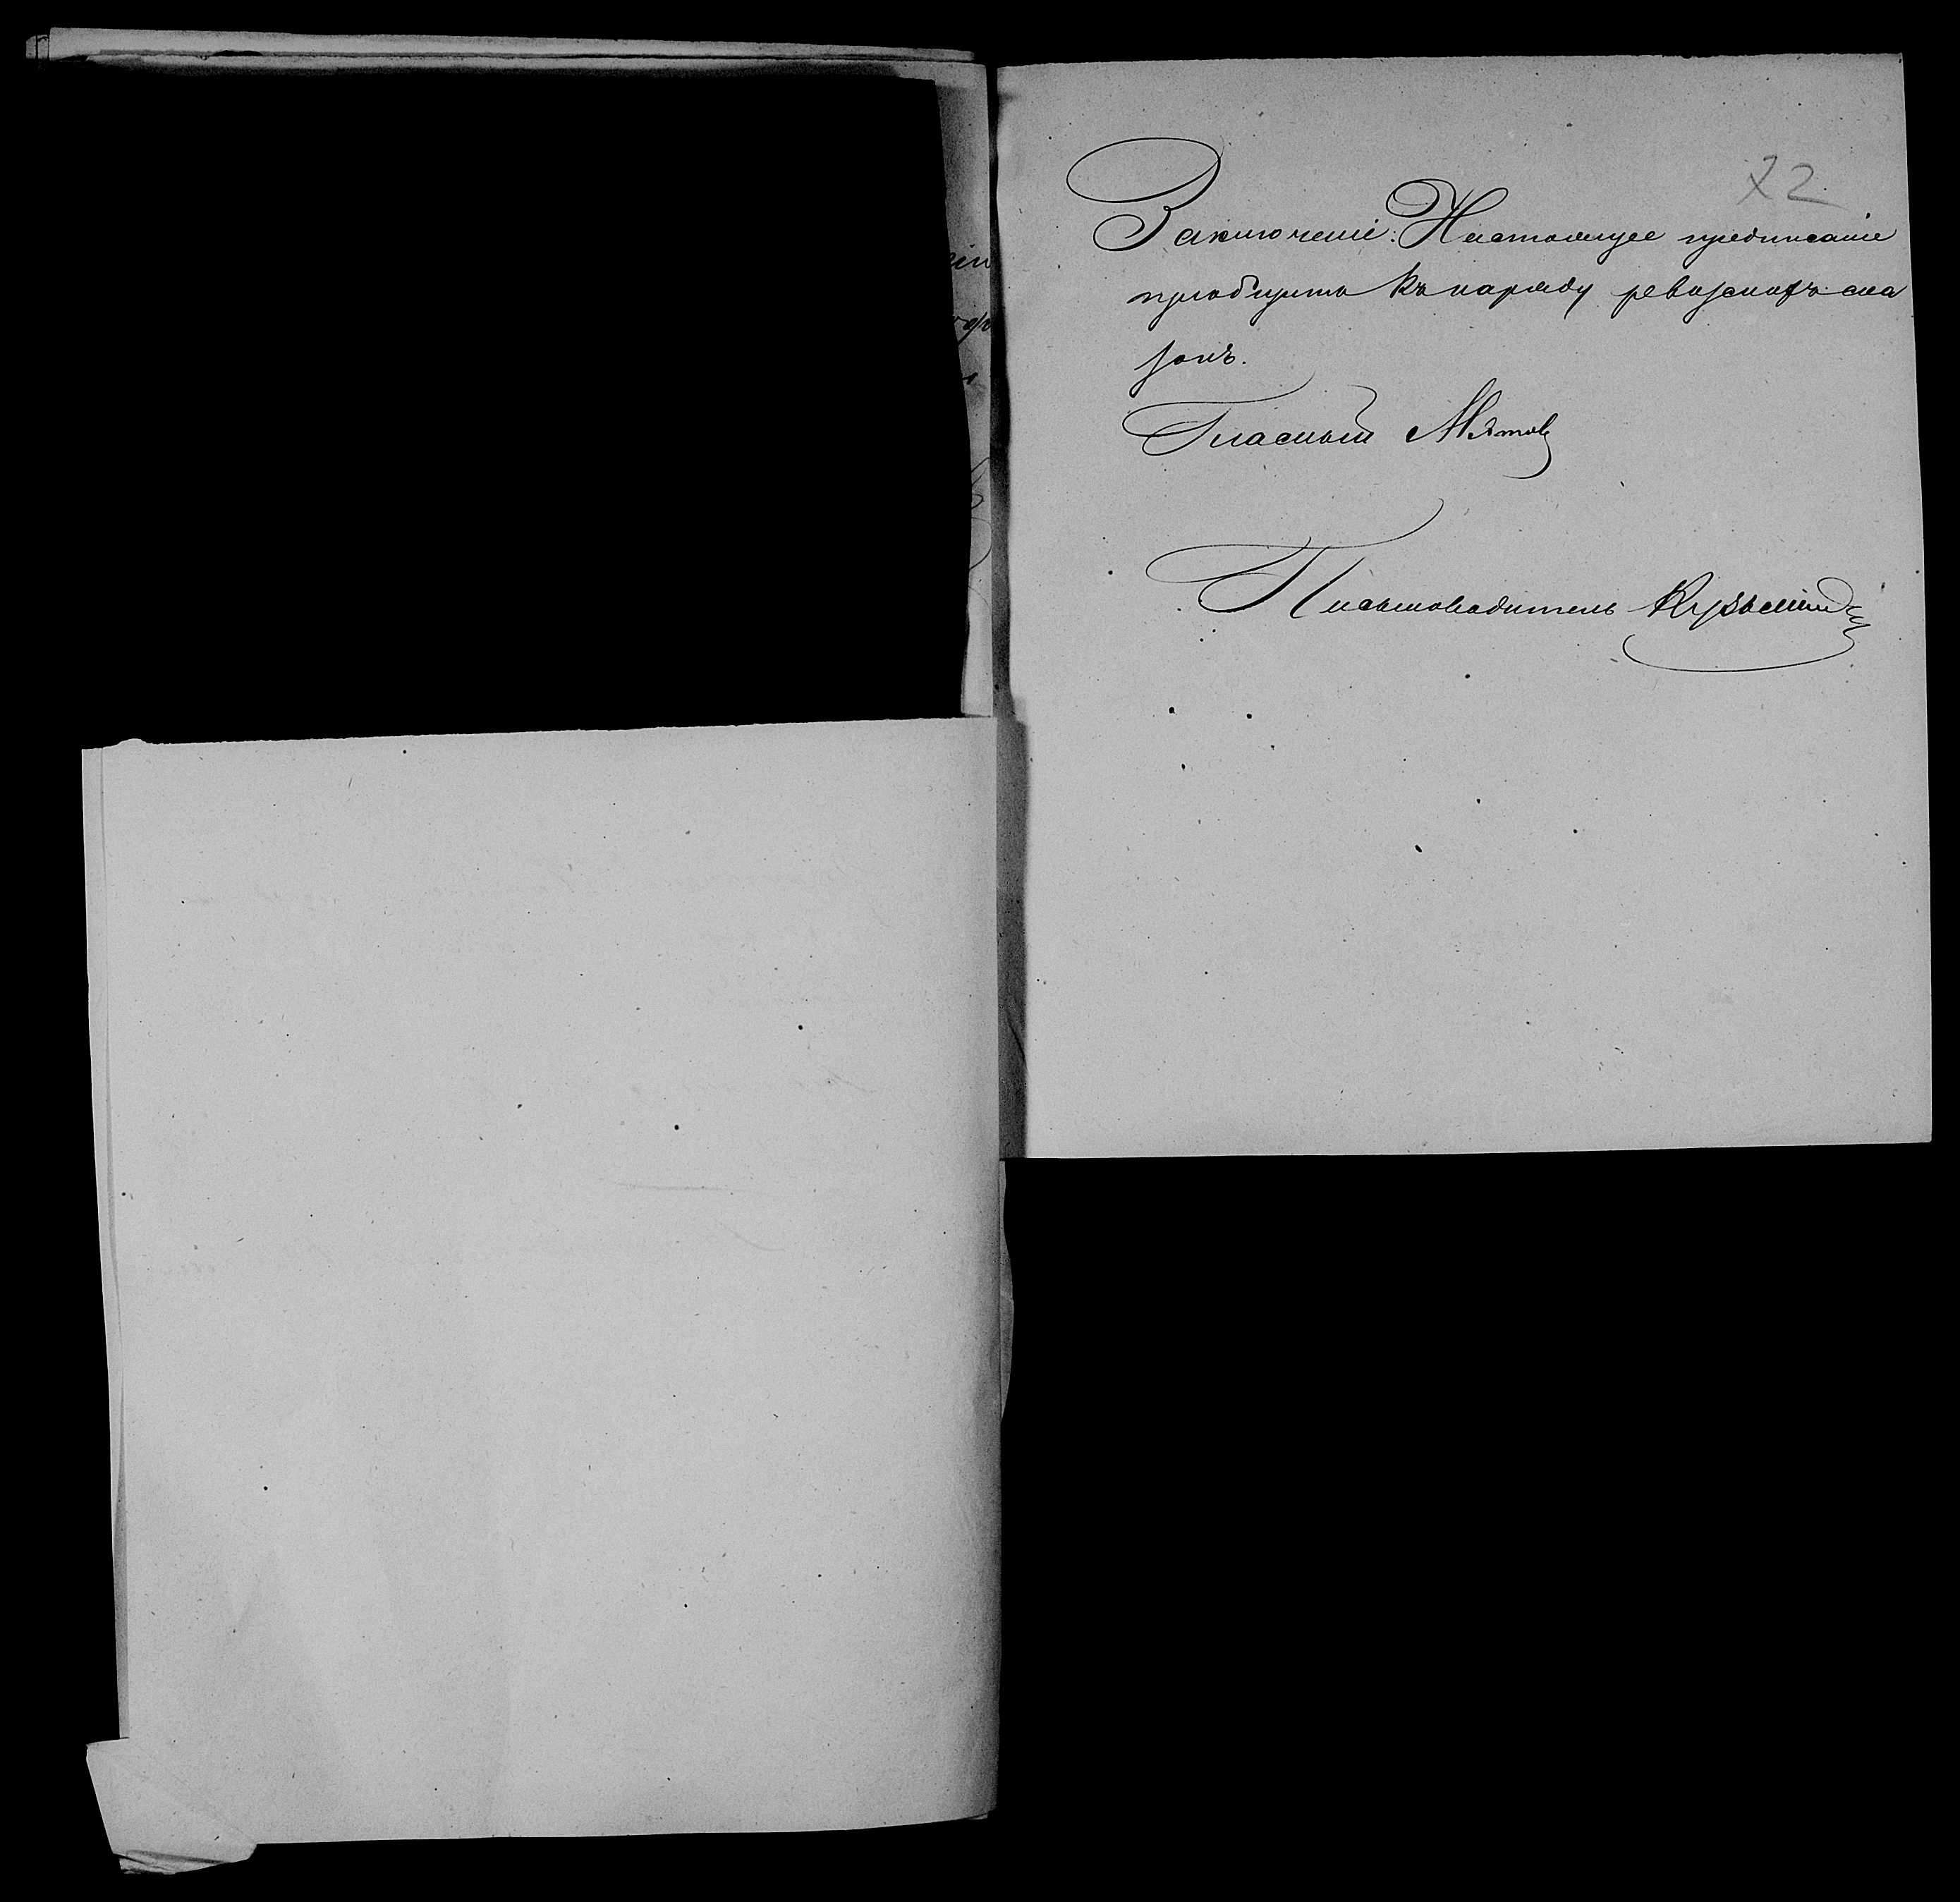 22
Заключеніе: Настоящее предписаніе
пріобщить къ наряду ревизскихъ ска
зокъ.
Гласный Мятов
Письмоводитель Кузьмин